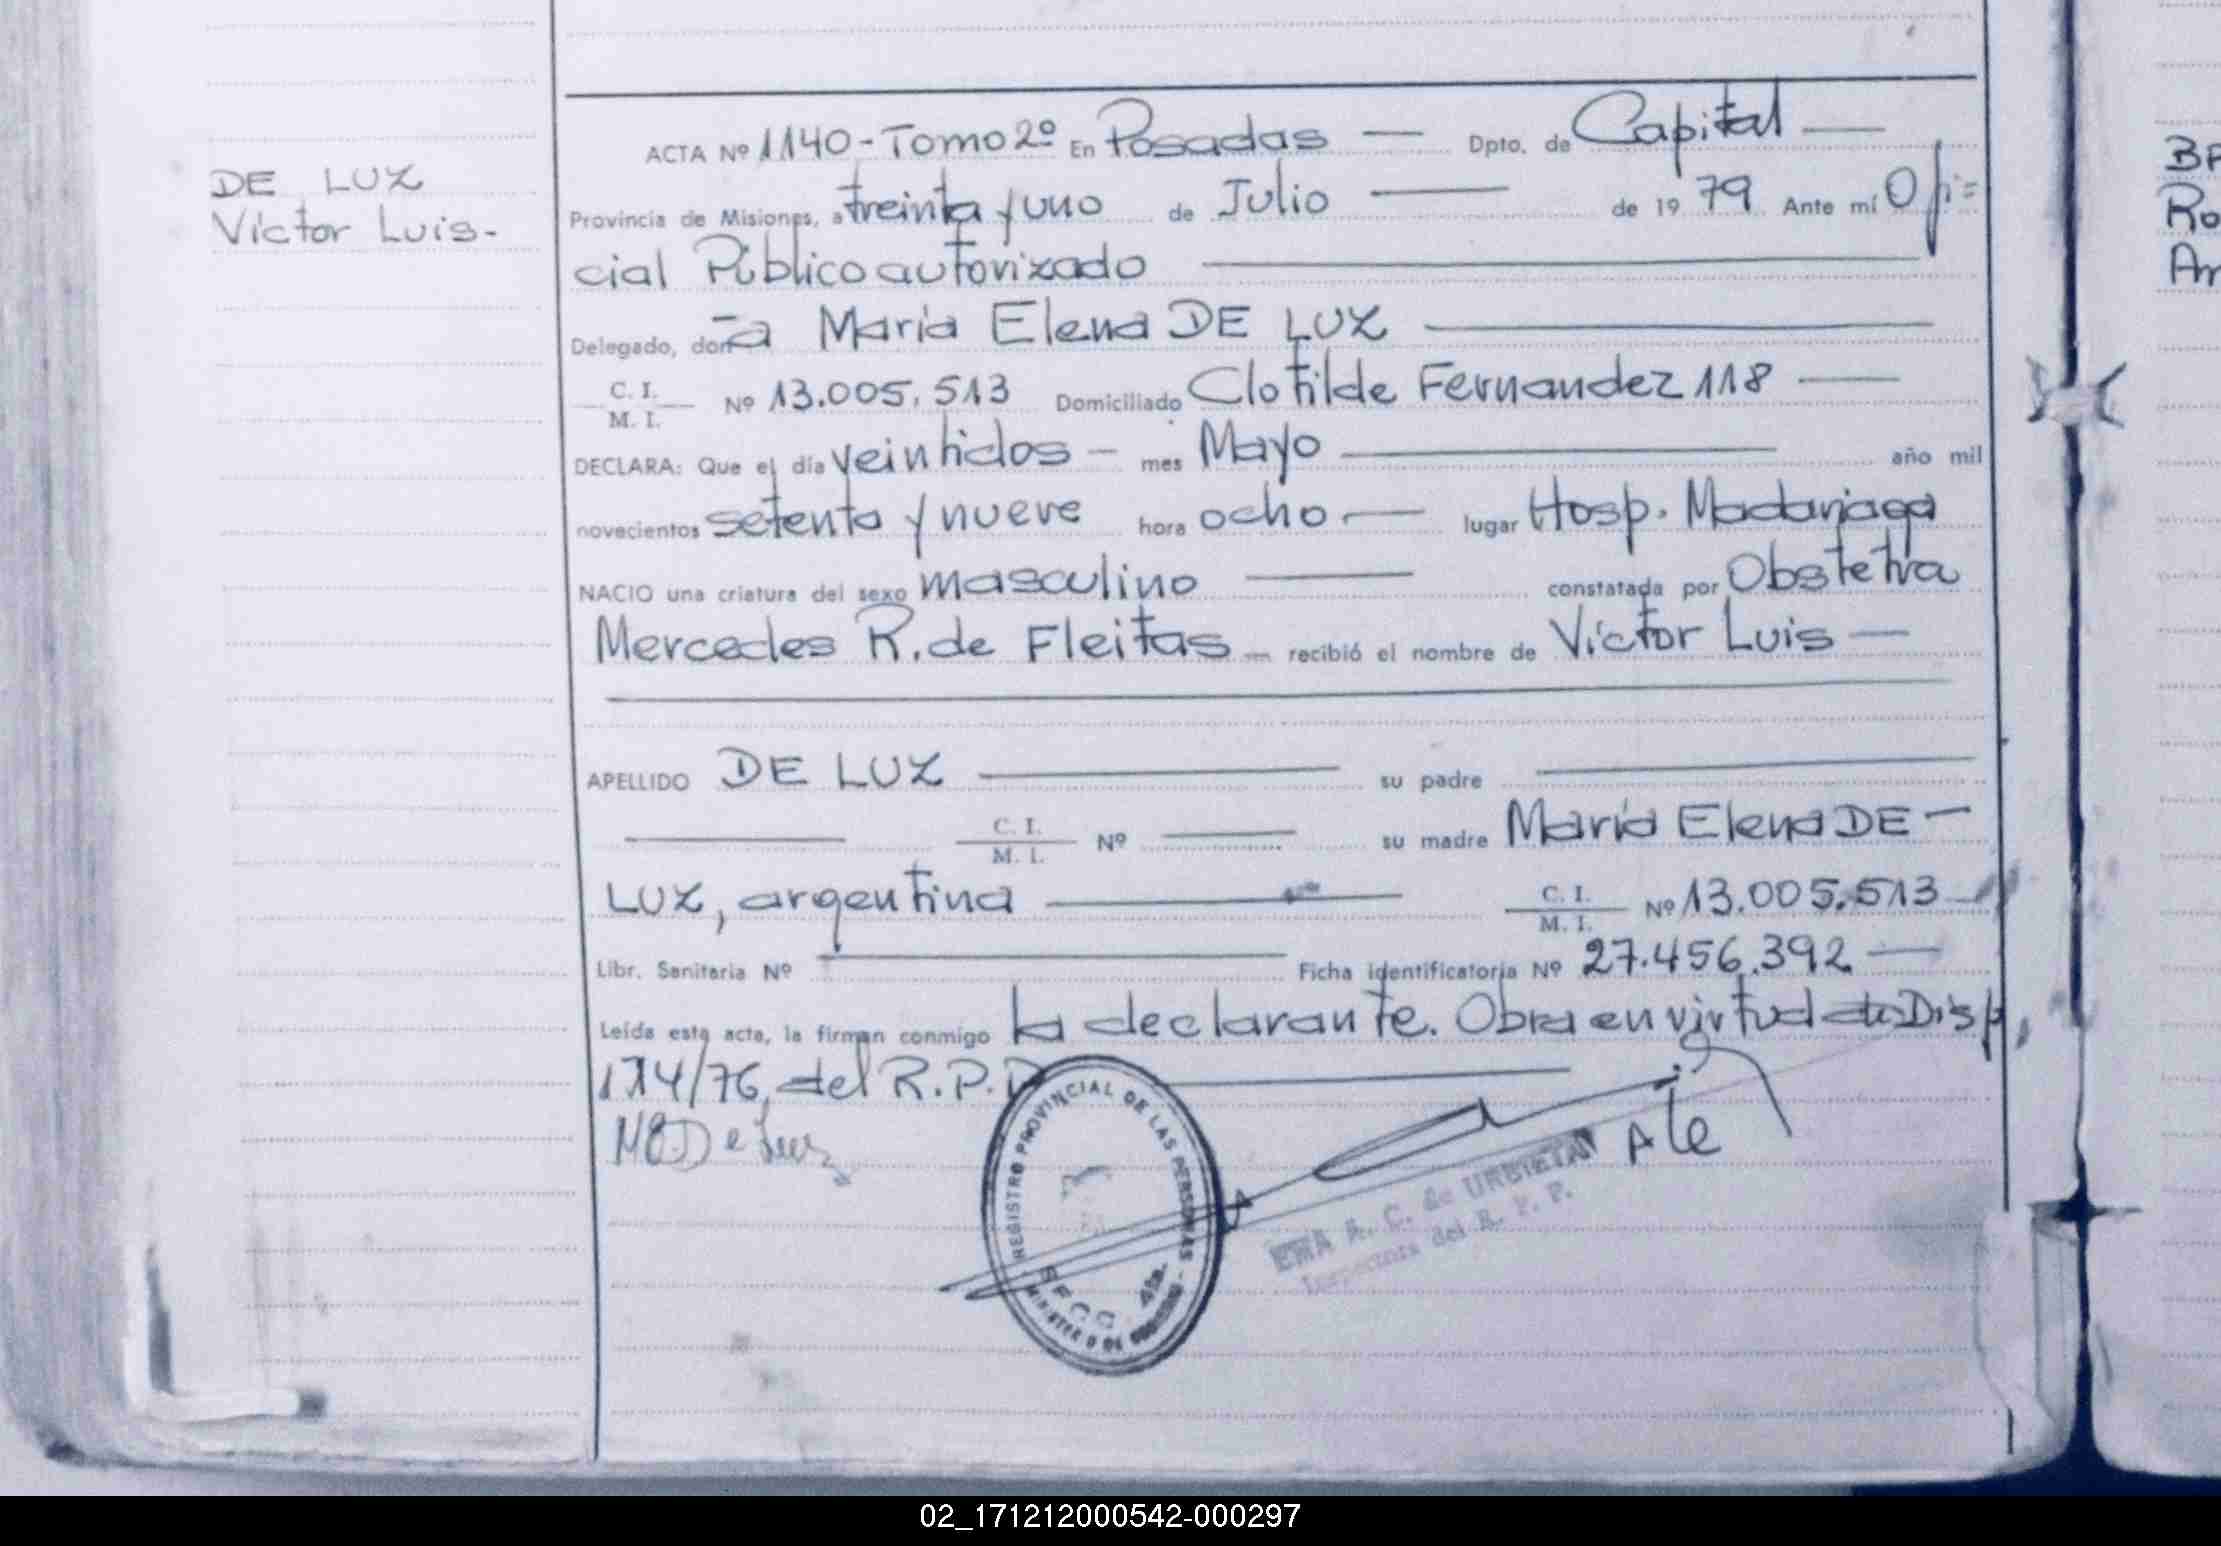 DE LUZ
Víctor Luis-
ACTA Nº 1140-Tomo 2º En Posadas — Dpto. de Capital —
Provincia de Misiones, a treinta y uno de Julio — de 19 79 Ante mí Ofi=
cial Público autorizado —
Delegado, don̄a María Elena DE LUZ —
C. I.
M. I. Nº 13.005.513 Domiciliado Clotilde Fernandez 118 —
DECLARA: Que el día veintidos — mes Mayo — año mil
novecientos setenta y nueve hora ocho — lugar Hosp. Madariaga
NACIO una criatura del sexo masculino — constatada por Obstetra
Mercedes R. de Fleitas — recibió el nombre de Víctor Luis —
APELLIDO DE LUZ — su padre —
— C. I.
M. I. Nº — su madre María Elena DE —
LUZ, argentina — C. I.
M. I. Nº 13.005.513 —
Libr. Sanitaria Nº — Ficha identificatoria Nº 27.456.392 —
Leída esta acta, la firman conmigo la declarante. Obra en virtud de Disp.
174/76, del R.P.P. —
M E De Luz
REGISTRO PROVINCIAL DE LAS PERSONAS
MINISTERIO DE GOBIERNO
A. C. de URBIETA
del R. P. P.
BR
Ro
An
02_171212000542-000297